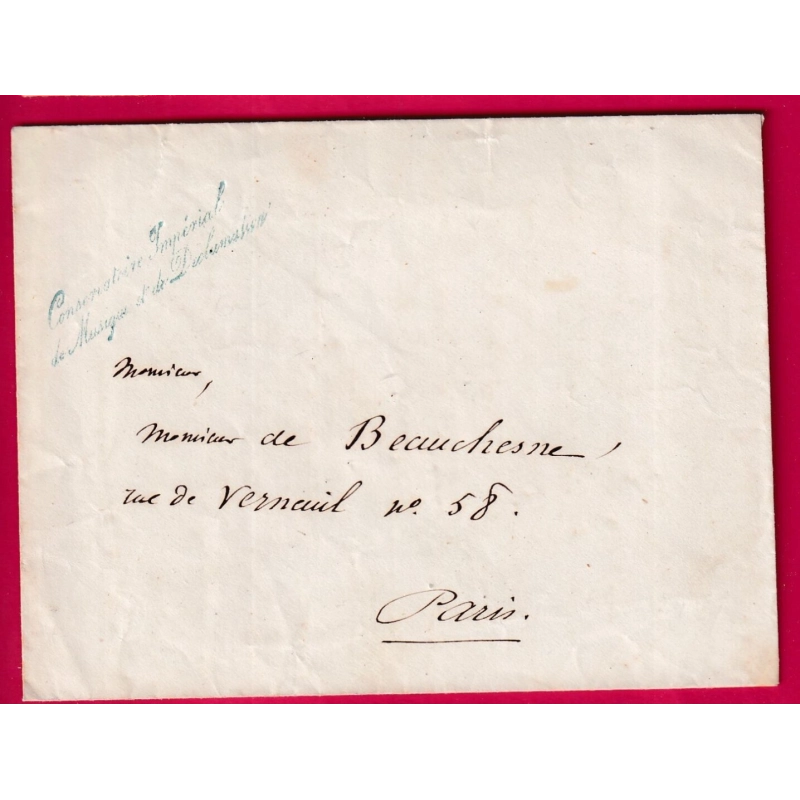 Conservatoire Impérial
de Musique et de Déclamation
Monsieur,
Monsieur de Beauchesne,
rue de Verneuil no. 58.
Paris.